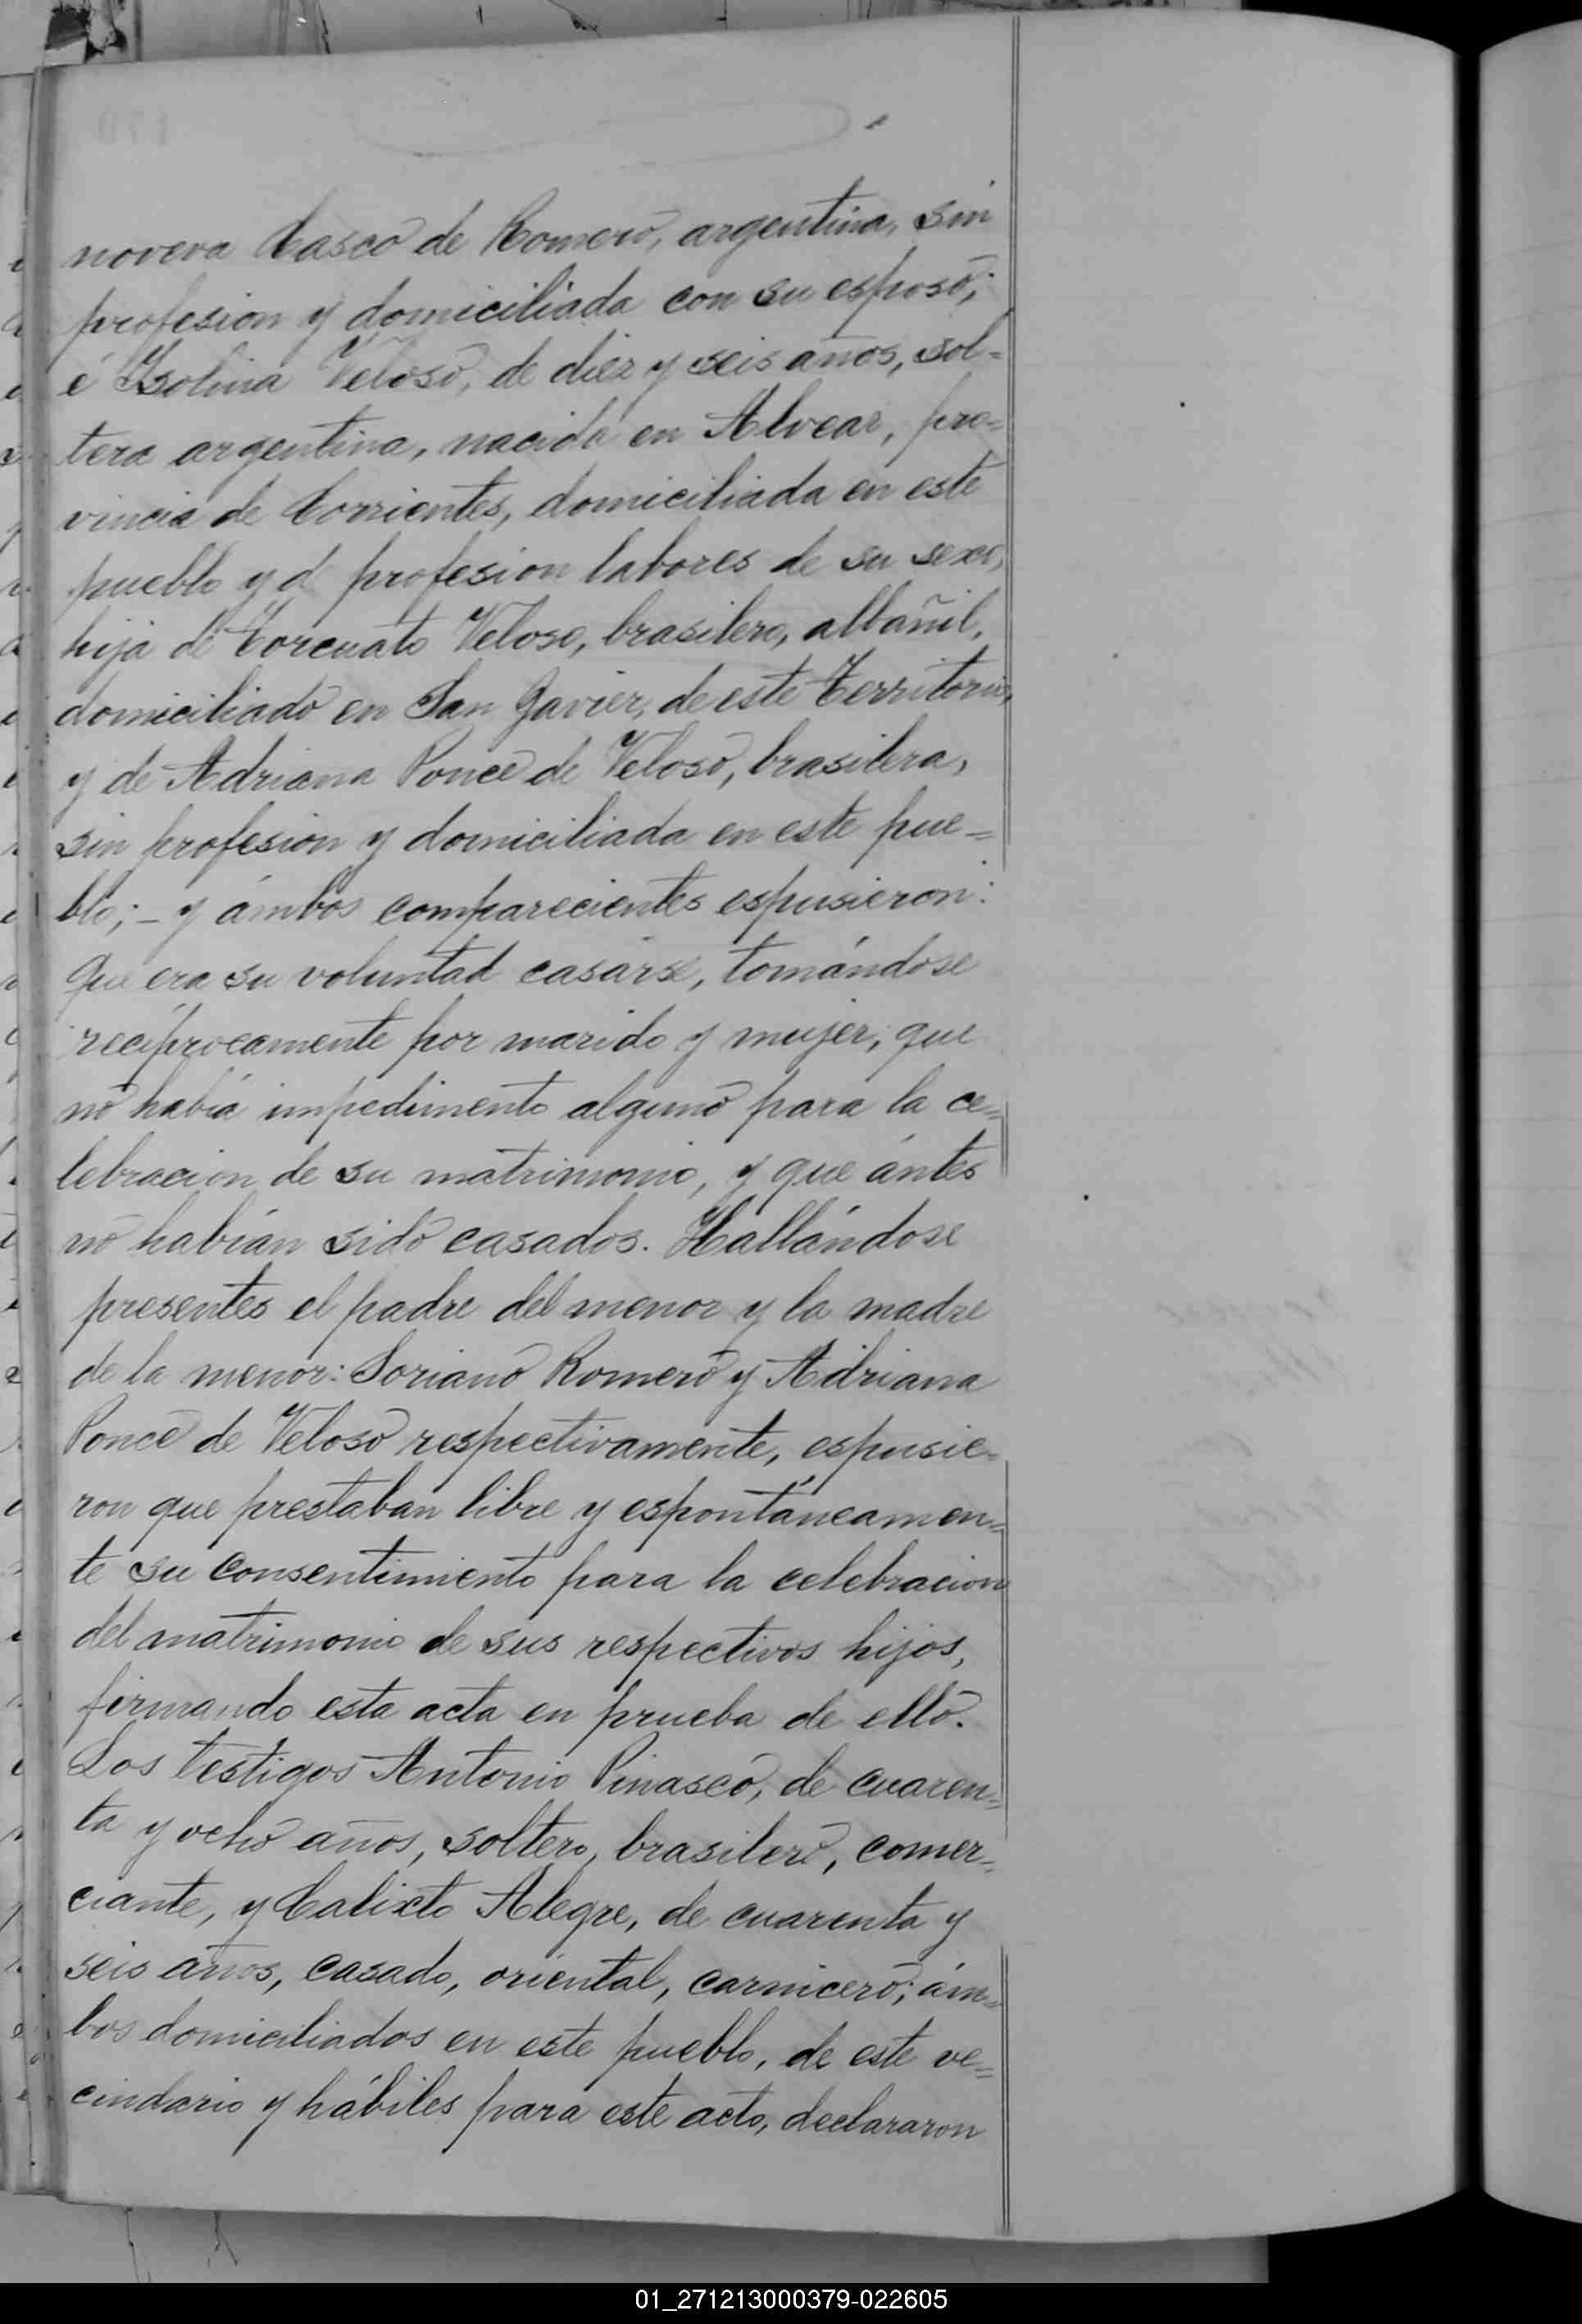 novera Casco de Romero, argentina, sin
profesion y domiciliada con su esposo;
é Isolina Veloso, de diez y seis años, sol=
tera argentina, nacida en Alvear, pro=
vincia de Corrientes, domiciliada en este
pueblo y d profesion labores de su sexo,
hija de Torcuato Veloso, brasilero, albañil,
domiciliado en San Javier, de este Territorio,
y de Adriana Ponce de Veloso, brasilera,
sin profesion y domiciliada en este pue=
blo; – y ámbos comparecientes espusieron:
Que era su voluntad casarse, tomándose
recíprocamente por marido y mujer; que
no había impedimento alguno para la ce=
lebracion de su matrimonio, y que ántes
no habían sido casados. Hallándose
presentes el padre del menor y la madre
de la menor: Soriano Romero y Adriana
Ponce de Veloso respectivamente, espusie=
ron que prestaban libre y espontáneamen=
te su consentimiento para la celebracion
del matrimonio de sus respectivos hijos,
firmando esta acta en prueba de ello.
Los testigos Antonio Pinasco, de cuaren=
ta y ocho años, soltero, brasilero, comer=
ciante, y Calixto Alegre, de cuarenta y
seis años, casado, oriental, carnicero; ám=
bos domiciliados en este pueblo, de este ve=
cindario y hábiles para este acto, declararon
01_271213000379-022605